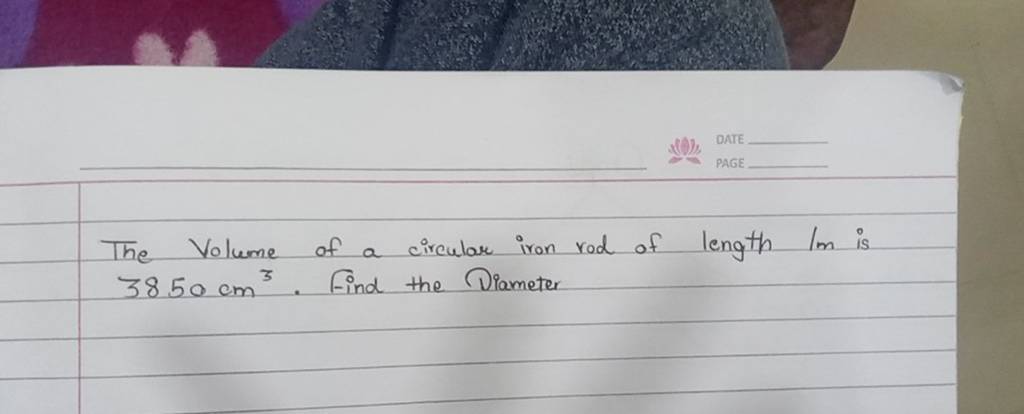 DATE
PAGE
The Volume of a circular iron rod of length 1m is
3850 cm³. Find the Diameter